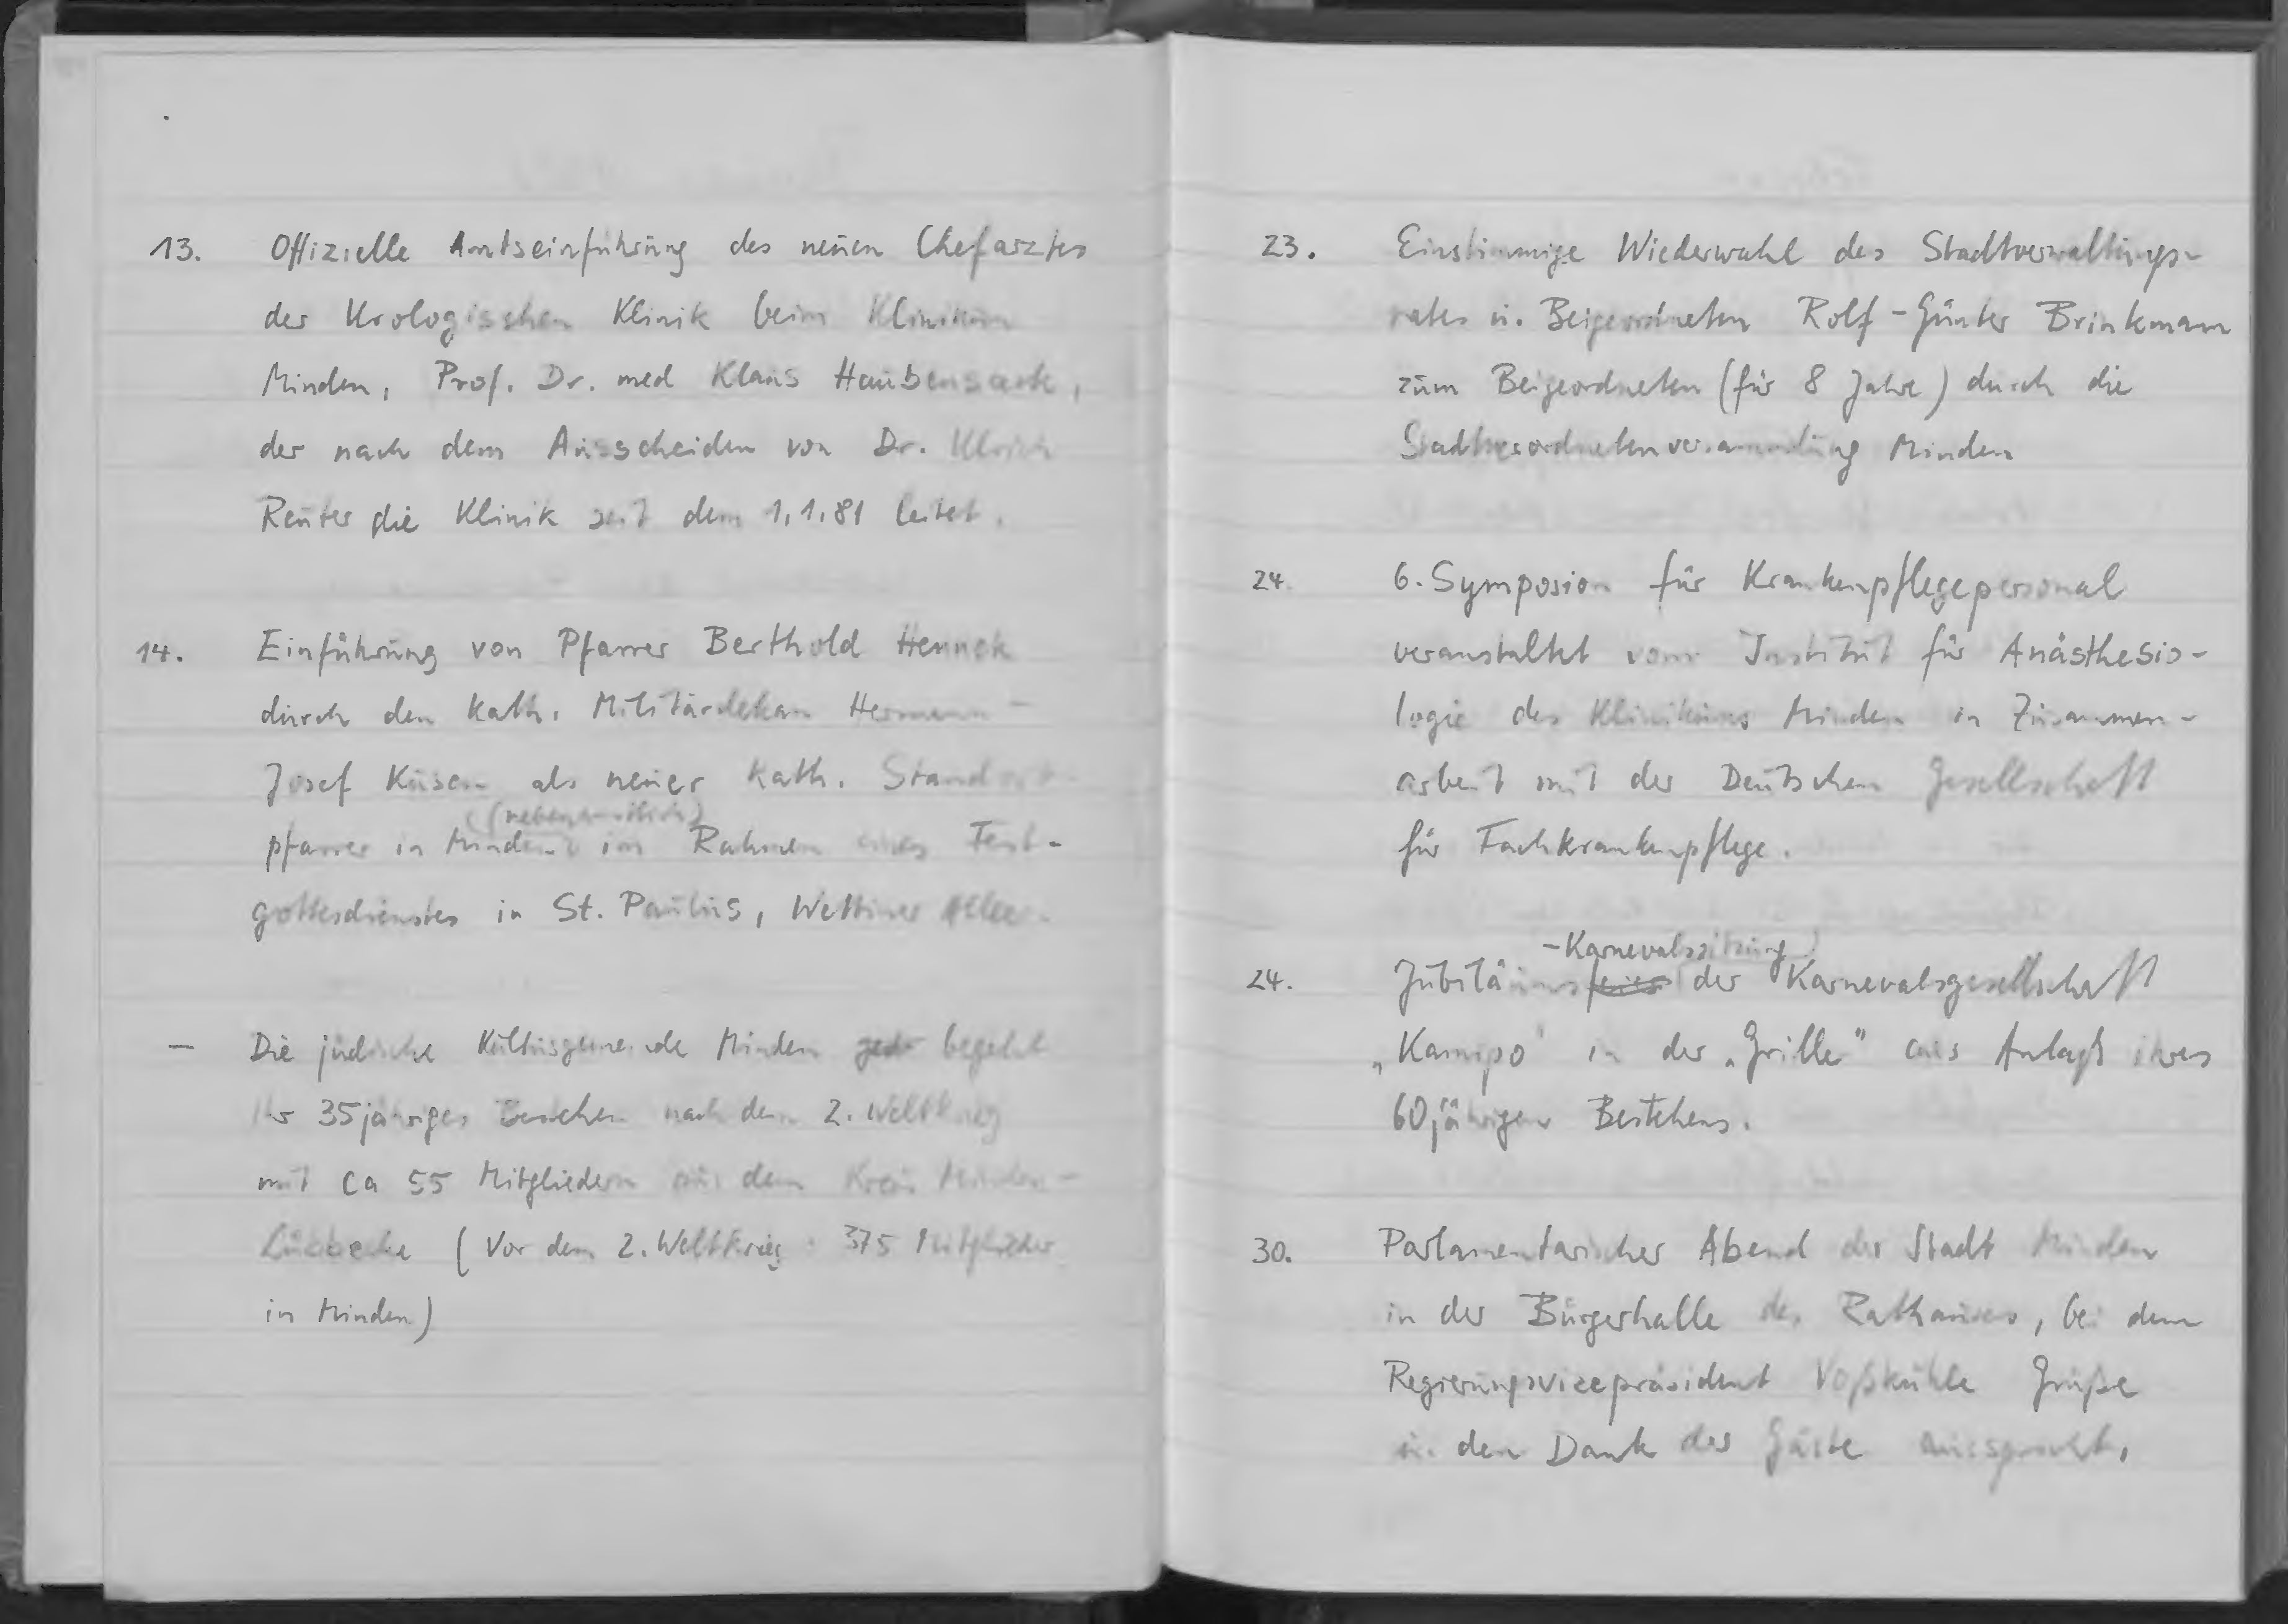 13. Offizielle Amtseinführung des neuen Chefarztes
der Urologischen Klinik beim Klinikum
Minden, Prof. Dr. med Klaus Haubensack,
der nach dem Ausscheiden von Dr. Ulrich
Reuter die Klinik seit dem 1.1.81 leitet.
14. Einführung von Pfarrer Berthold Hennek
durch den kath. Militärdekan Hermann-
Josef Kusen als neuer kath. Standort-
(nebenamtlich)
pfarrer in Minden im Rahmen eines Fest-
gottesdienstes in St. Paulus, Wettiner Allee.
— Die jüdische Kultusgemeinde Minden begeht
ihr 35jähriges Bestehen nach dem 2. Weltkrieg
mit ca 55 Mitgliedern aus dem Kreis Minden-
Lübbecke (Vor dem 2. Weltkrieg: 375 Mitglieder
in Minden)
23. Einstimmige Wiederwahl des Stadtverwaltungs-
rates u. Beigeordneten Rolf-Günter Brinkmann
zum Beigeordneten (für 8 Jahre) durch die
Stadtverordnetenversammlung Minden
24. 6. Symposion für Krankenpflegepersonal
veranstaltet vom Institut für Anästhesio-
logie des Klinikums Minden in Zusammen-
arbeit mit der Deutschen Gesellschaft
für Fachkrankenpflege.
-Karnevalssitzung
24. Jubiläumsfeier der Karnevalsgesellschaft
„Kamipo" in der „Grille" aus Anlaß ihres
60jährigen Bestehens.
30. Parlamentarischer Abend der Stadt Minden
in der Bürgerhalle des Rathauses, bei dem
Regierungsvicepräsident Voßkühle Grüße
u. den Dank der Gäste ausspricht.